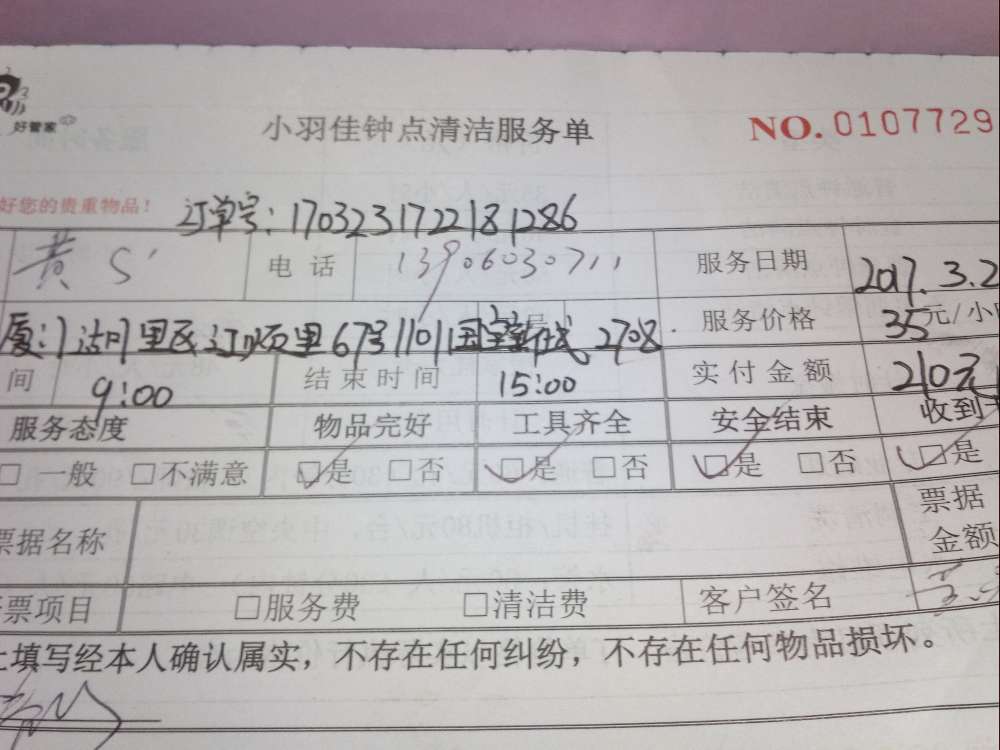 好管家
小羽佳钟点清洁服务单 NO. 0107729
好您的贵重物品！ 订单号：1703231722181286
黄S' 电话 13906030711 服务日期 2017.3.2
厦门湖里区江头里67号1101国宝新城2708. 服务价格 35元/小
间 9:00 结束时间 15:00 实付金额 210元
服务态度 物品完好 工具齐全 安全结束 收到
□一般 □不满意 □是 □否 □是 □否 □是 □否 □是
票据名称 票据金额
票项目 □服务费 □清洁费 客户签名
填写经本人确认属实，不存在任何纠纷，不存在任何物品损坏。